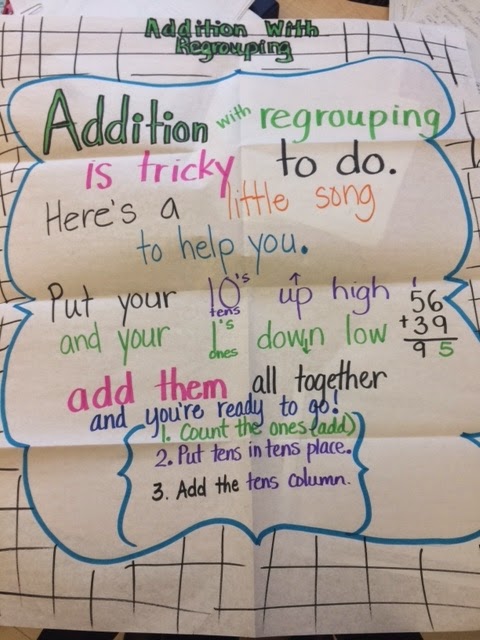 Addition With
Regrouping
Addition with regrouping
is tricky to do.
Here's a little song
to help you.
Put your 10's up high
tens
and your 1's down low
ones
1
56
+39
95
add them all together
and you're ready to go!
1. Count the ones (add)
2. Put tens in tens place.
3. Add the tens column.